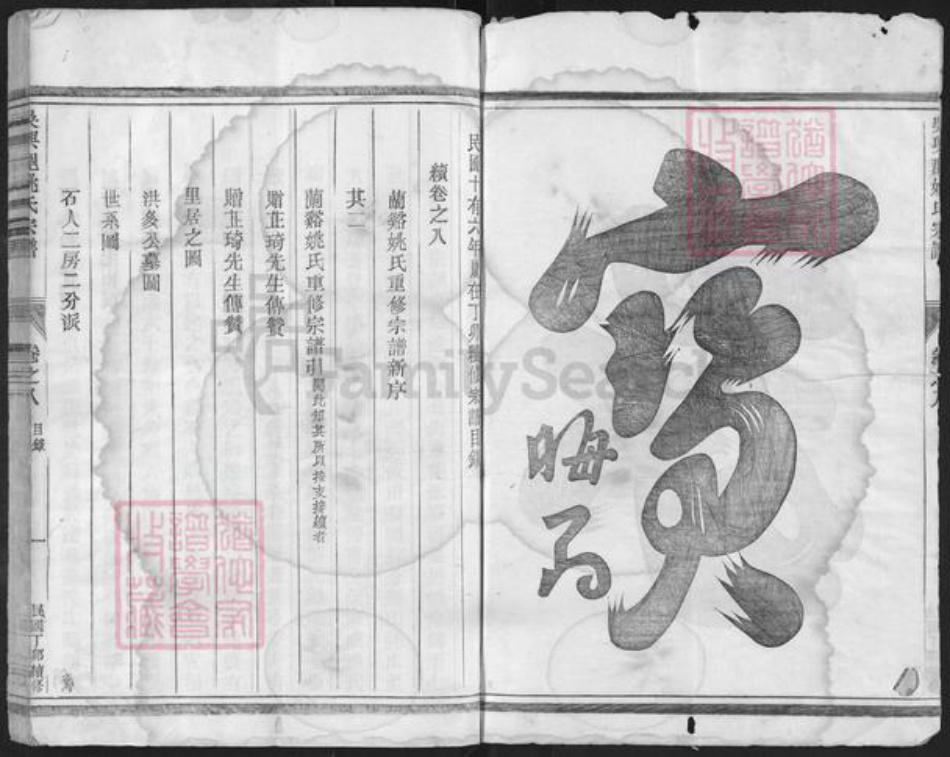 寶
晦
民國十有六年歲在丁卯續修宗譜目錄
續卷之八
蘭谿姚氏重修宗譜新序
其二
蘭谿姚氏重修宗譜引 閱此知其所以接支接續者
贈正琦先生傳贊
贈正琦先生傳贊
里居之圖
世系圖
石人二房二分派
卷之八 目錄 一 民國丁卯續修
猶他家譜學會收藏
猶他家譜學會收藏
FamilySearch